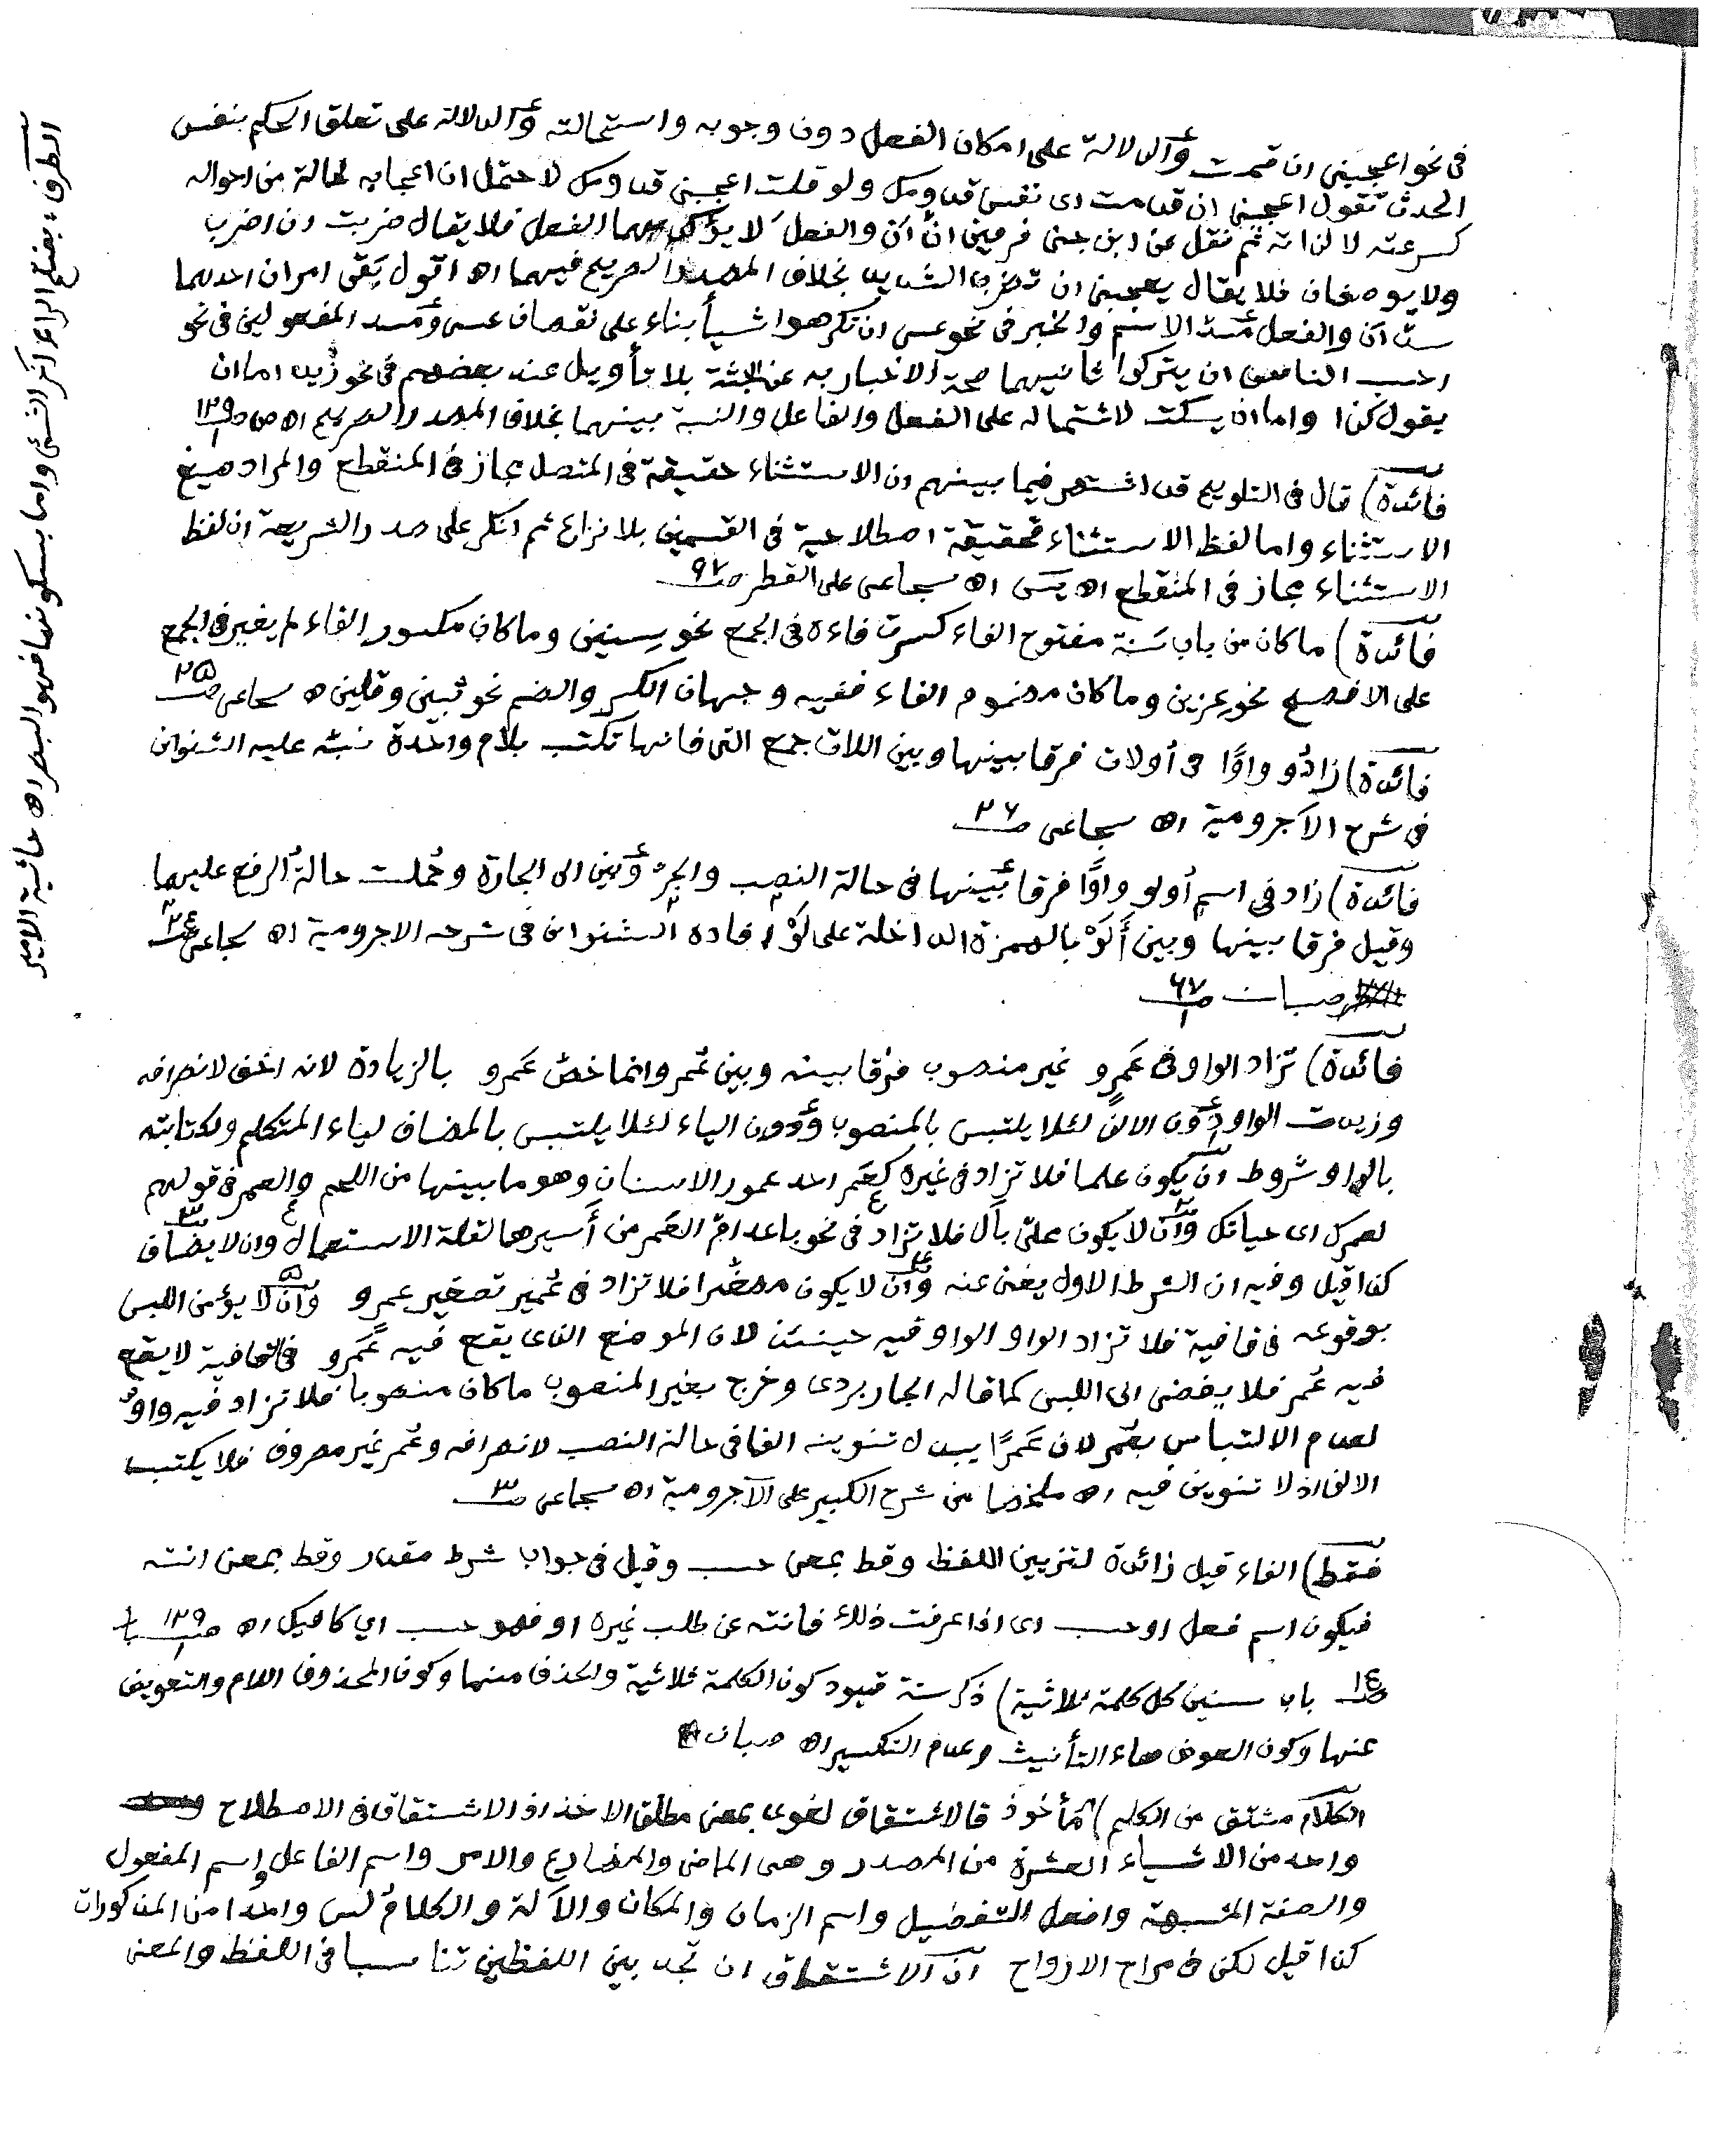 في نحو اعجبني ان قمت والدلالة على امكان الفعل دون وجوبه واستحالته والدلالة على تعلق الحكم بنفس
الحدث تقول اعجبني ان قدمت اى نفس قدومك ولو قلت اعجبني قدومك لاحتمل ان اعجابه لحالة من احواله
كسرعته لا لذاته ثم نقل عن ابن جنى فرقين ان أن والفعل لا يؤكد بهما الفعل فلا يقال ضربت ان اضرب
ولا يوصفان فلا يقال يعجبني ان تضرب الشديد بخلاف المصدر الصريح فيهما اه اقول بقى امران احدهما
سد ان والفعل مسد الاسم والخبر في نحو عسى ان تكرهوا شيأ بناء على نقصان عسى ومسد المفعولين في نحو
احسب الناس ان يتركوا ثانيهما صحة الاخبار به عن الجثة بلا تأويل عند بعضهم في نحو زيد اما ان
يقول كذا واما ان يسكت لاشتماله على الفعل والفاعل والنسبة بينهما بخلاف المصدر الصريح اه ص ١٢٩ ١
فائدة) قال في التلويح قد اشتهر فيما بينهم ان الاستثناء حقيقة في المتصل مجاز في المنقطع والمراد صيغ
الاستثناء واما لفظ الاستثناء فحقيقة اصطلاحية في القسمين بلا نزاع ثم انكر على صدر الشريعة ان لفظ
الاستثناء مجاز في المنقطع اه يس اه سجاعى على القطر ص ٩٧
فائدة) ما كان من باب سَنة مفتوح الفاء كسرت فاءه في الجمع نحو سِنين وما كان مكسور الفاء لم يغير في الجمع
على الافصح نحو عِزين وما كان مضموم الفاء ففيه وجهان الكسر والضم نحو ثبين وقلين اه سجاعى ص ٢٥
فائدة) زادُو واوًا في أولات فرقا بينها وبين اللات جمع التى فانها تكتب بلام واحدة نبّه عليه الشنوان
في شرح الآجرومية اه سجاعى ص ٢٦
فائدة) زاد في اسم أولو واوًا فرقا بينها في حالة النصب والجرّ وبين الى الجارة وحُملت حالة الرفع عليهما
وقيل فرقا بينها وبين أَلَوْ بالهمزة الداخلة على لَوْ افاده الشنوان في شرحه الاجرومية اه سجاعى ص ٢٤
صبان ص ٦٧ ١
فائدة) تزاد الواو في عَمرٍو غير منصوب فرقا بينه وبين عُمر وانما خصّ عَمرو بالزيادة لانه اخف لانصرافه
وزيدت الواو دون الالف لئلا يلتبس بالمنصوب ودون الياء لئلا يلتبس بالمضاف لياء المتكلم ولكتابته
بالواو شروط ان يكون علما فلا تزاد في غيره كعَمر احد عمور الاسنان وهو ما بينها من اللحم والعمر في قولهم
لعمرك اى حياتك وان لا يكون محلّى بأل فلا تزاد في نحو باعد ام العَمر من أسيرها لقلة الاستعمال وان لا يضاف
كذا قيل وفيه ان الشرط الاول يغنى عنه وان لا يكون مصغّرا فلا تزاد في عُمير تصغير عمرو وان لا يؤمن اللبس
بوقوعه في قافية فلا تزاد الواو الواو فيه حينئذ لان الموضع الذى يقع فيه عَمرو في القافية لا يقع
فيه عُمر فلا يفضى الى اللبس كما قاله الجاربردى وخرج بغير المنصوب ما كان منصوبا فلا تزاد فيه واوٌ
لعدم الالتباس بعُمر لان عَمرًا يبدل تنوينه الفا في حالة النصب لانصرافه وعُمر غير مصروف فلا يكتب
الالف اذ لا تنوين فيه اه ملخصا من شرح الكبير على الآجرومية اه سجاعى ص ٣
فقط) الفاء قيل زائدة لتزيين اللفظ وقط بمعى حسب وقيل في جواب شرط مقدار وقط بمعنى انته
فيكون اسم فعل او حسب اى اذا عرفت ذلك فانته عن طلب غيره او فهو حسب اي كافيك اه ص ١٢٩ ١
ص ١٤ باب سنين كل كلمة ثلاثية) ذكر ستة قيود كون الكلمة ثلاثية والحذف منها وكون المحذوف اللام والتعويض
عنها وكون العوض هاء التأنيث وعدم التكسير اه صبان
الكلام مشتق من الكلم) مأخوذ فالاشتقاق لغوى بمعنى مطلق الاخذ اذ الاشتقاق في الاصطلاح
واحد من الاشياء العشرة من المصدر وهى الماضى والمضارع والامر واسم الفاعل واسم المفعول
والصفة المشبهة وافعل التفضيل واسم الزمان والمكان والآلة والكلامُ ليس واحدا من المذكورات
كذا قيل لكن في مراح الارواح ان الاشتقاق ان تجد بين اللفظين تناسبا في اللفظ والمعنى
الطرف؛ بفتح الراء آخر الشئ واما بسكونها فهو البصر اه حاشية الامير